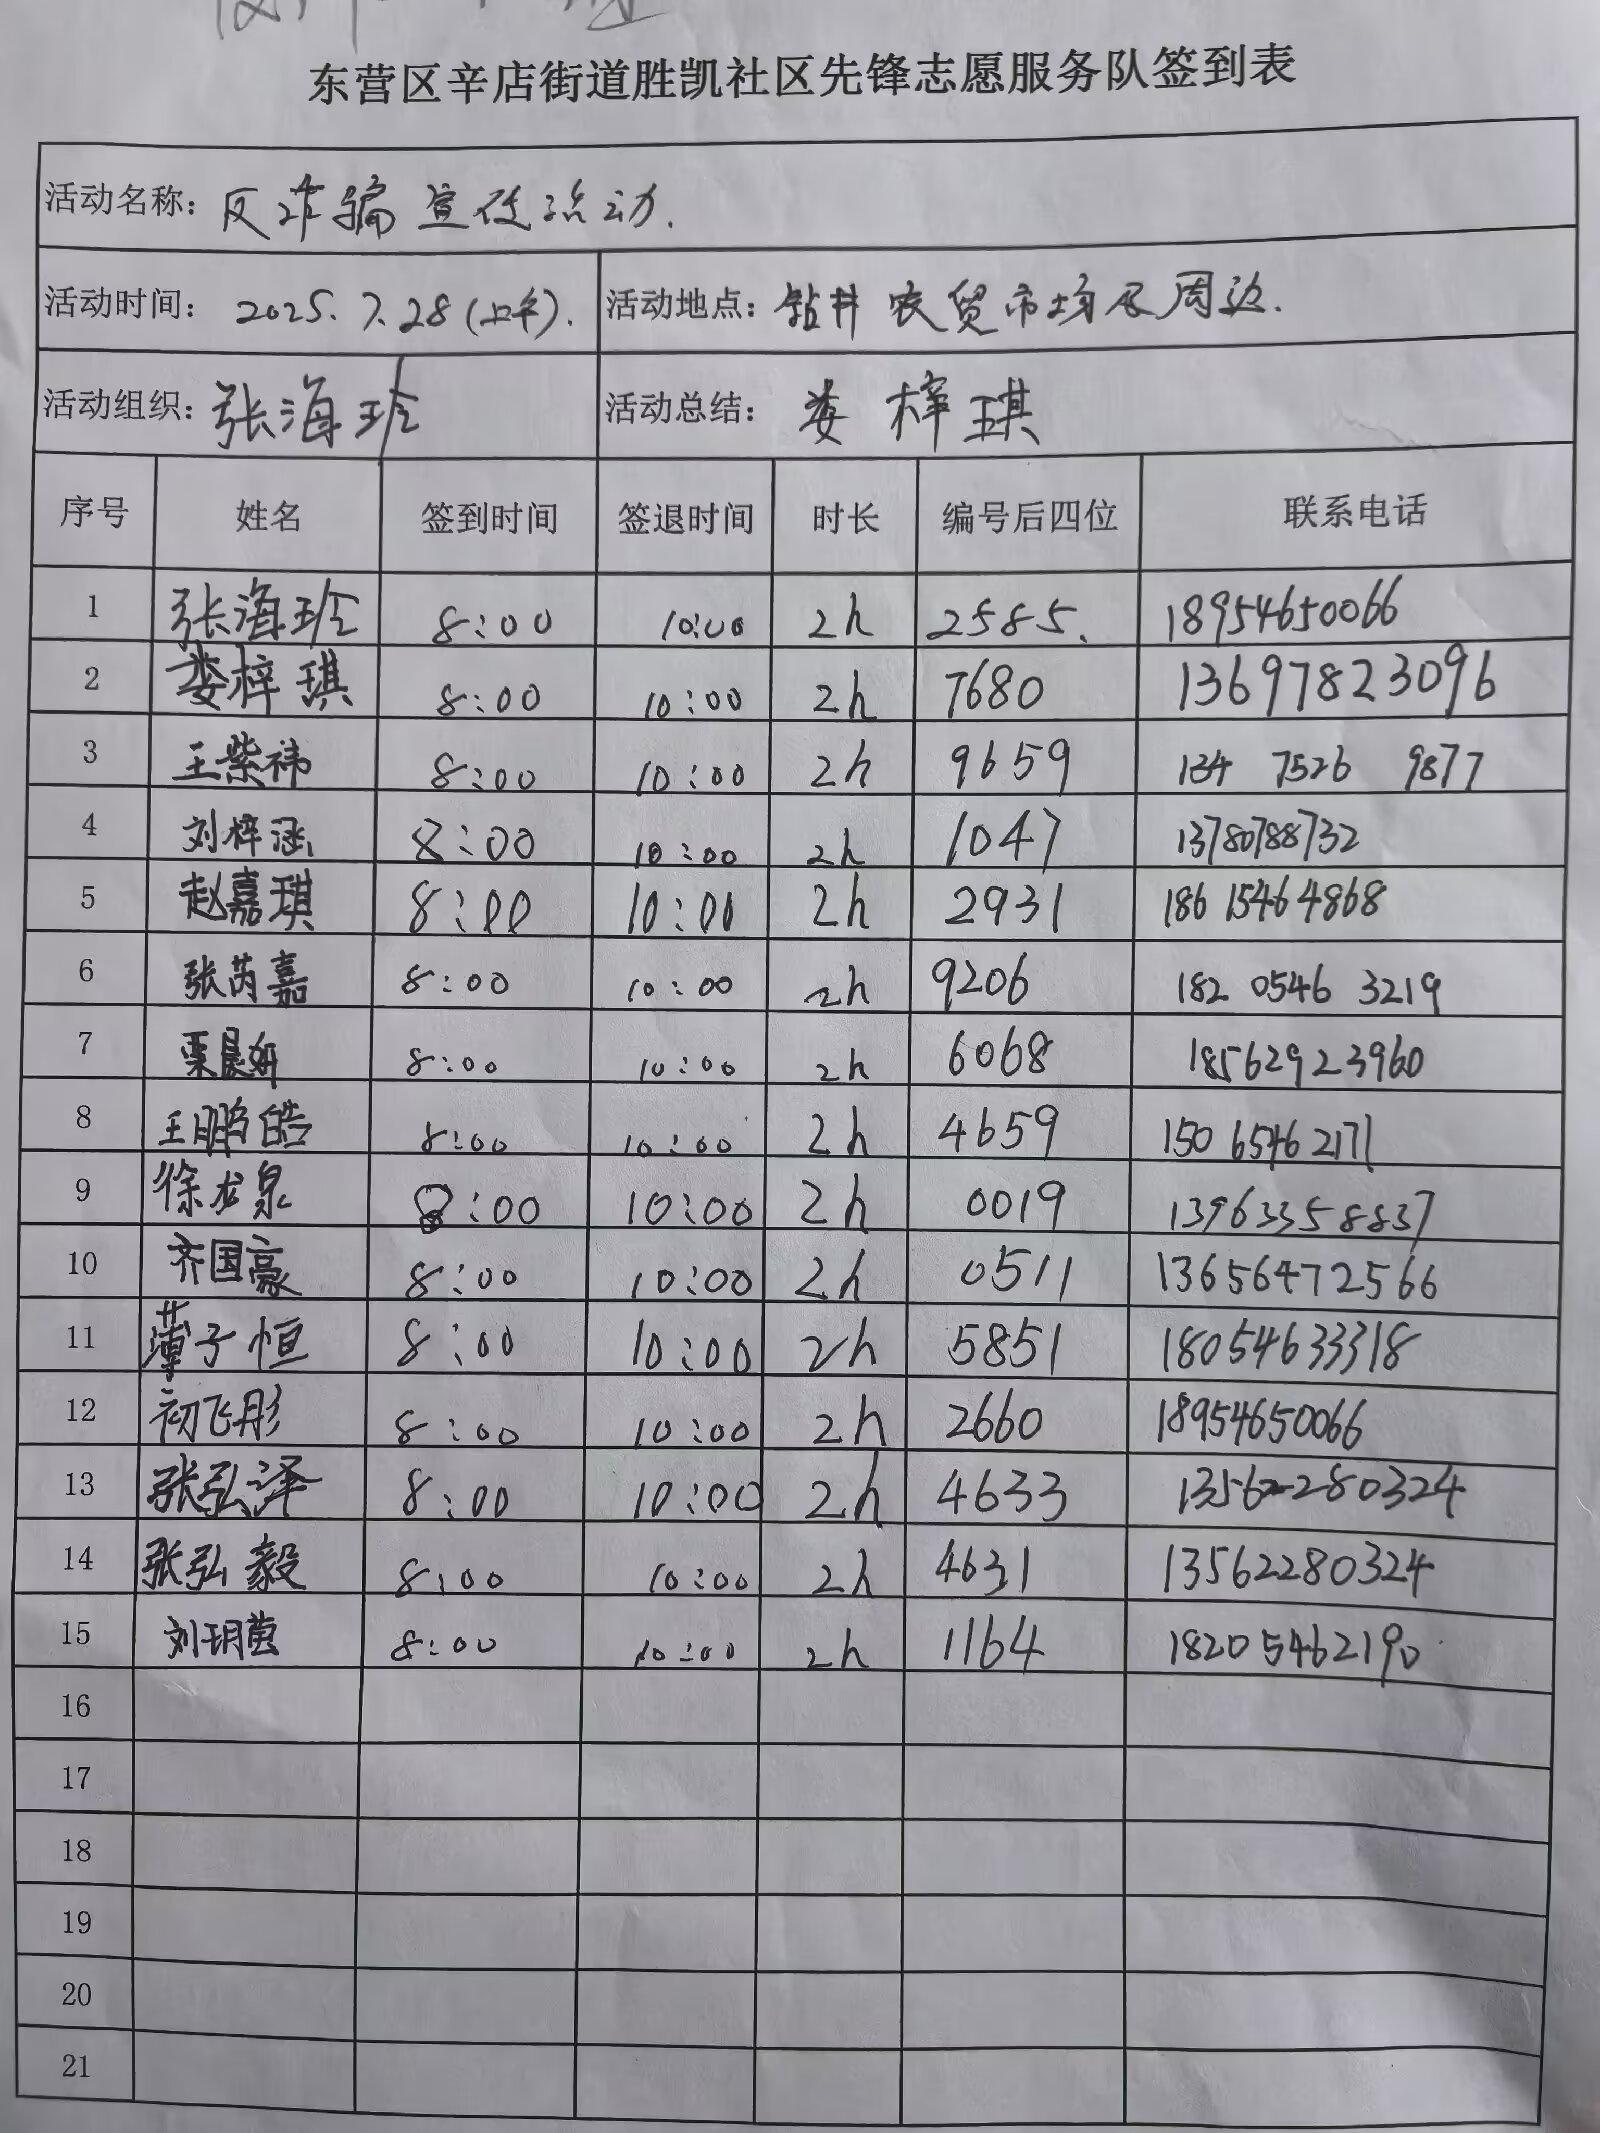 东营区辛店街道胜凯社区先锋志愿服务队签到表
活动名称：反诈骗宣传活动.
活动时间：2025.7.28(上午). 活动地点：钻井农贸市场及周边.
活动组织：张海玲 活动总结：娄梓琪
序号 姓名 签到时间 签退时间 时长 编号后四位 联系电话
1 张海玲 8:00 10:00 2h 2585. 18954650066
2 娄梓琪 8:00 10:00 2h 7680 13697823096
3 王紫祎 8:00 10:00 2h 9659 134 7526 9877
4 刘梓涵 8:00 10:00 2h 1047 13780788732
5 赵嘉琪 8:00 10:00 2h 2931 186 1546 4868
6 张芮嘉 8:00 10:00 2h 9206 182 0546 3219
7 栗晨妍 8:00 10:00 2h 6068 18562923960
8 王鹏皓 8:00 10:00 2h 4659 150 6546 2171
9 徐龙泉 8:00 10:00 2h 0019 13963358837
10 齐国豪 8:00 10:00 2h 0511 13656472566
11 薄子恒 8:00 10:00 2h 5851 18054633318
12 初飞彤 8:00 10:00 2h 2660 18954650066
13 张弘泽 8:00 10:00 2h 4633 13562280324
14 张弘毅 8:00 10:00 2h 4631 13562280324
15 刘玥萤 8:00 10:00 2h 1164 18205462190
16
17
18
19
20
21